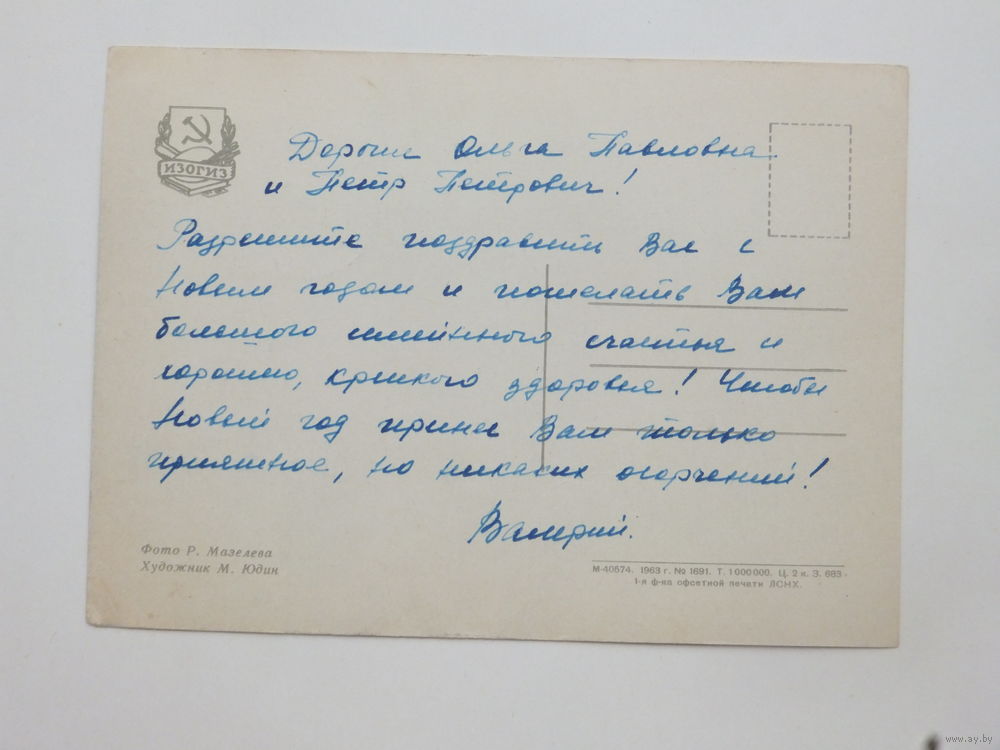 ИЗОГИЗ
Дорогие Ольга Павловна
и Петр Петрович!
Разрешите поздравить Вас с
Новым годом и пожелать Вам
большого семейного счастья и
хорошего, крепкого здоровья! Чтобы
Новый год принес Вам только
приятное, но никаких огорчений!
Валерий.
Фото Р. Мазелева
Художник М. Юдин
М-40574. 1963 г. № 1691. Т. 1 000 000. Ц. 2 к. З. 683
1-я ф-ка офсетной печати ЛСНХ.
www.ay.by